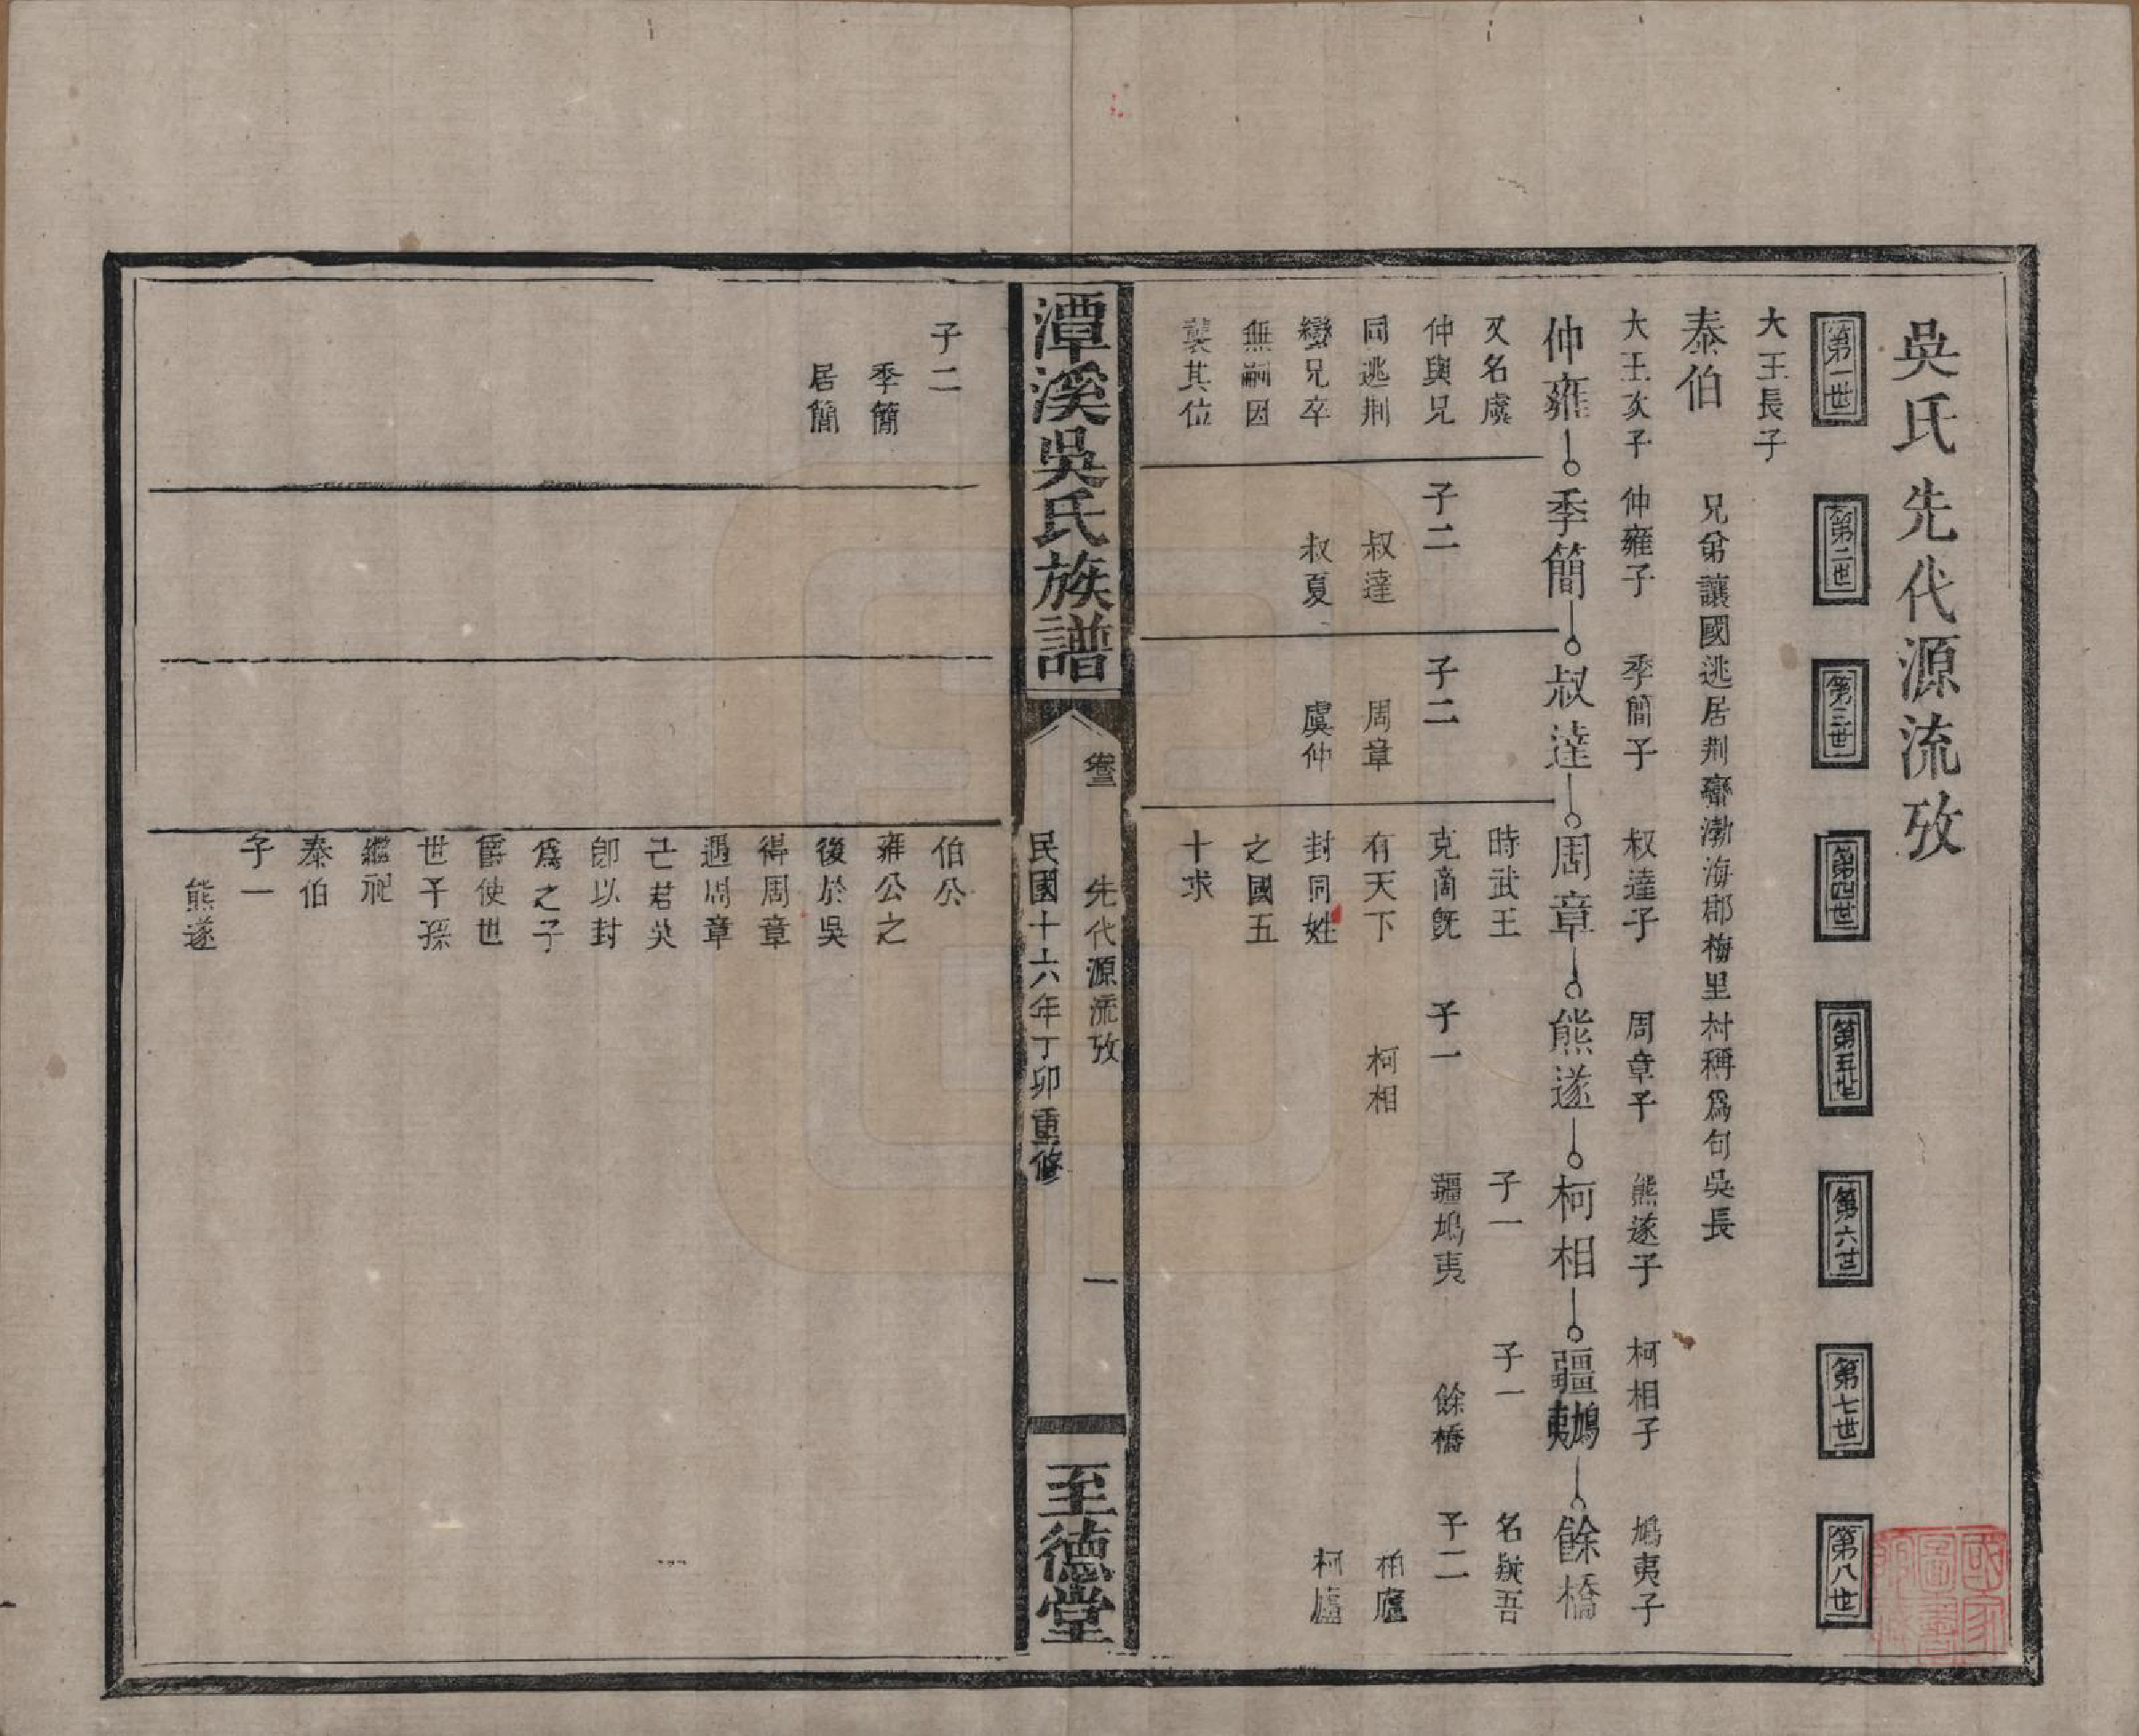 吳氏先代源流攷
第一世
第二世
第三世
第四世
第五世
第六世
第七世
第八世
大王長子
泰伯
兄弟讓國逃居荆蠻渤海郡梅里村稱爲句吳長
大王次子
仲雍
又名虞
仲與兄
同逃荆
蠻兄卒
無嗣因
襲其位
子二
季簡
居簡
仲雍子
季簡
子二
叔達
叔夏
季簡子
叔達
子二
周章
虞仲
叔達子
周章
時武王
克商旣
有天下
封同姓
之國五
十求
伯公
雍公之
後於吳
得周章
遇周章
已君吳
卽以封
爲之子
爵使世
世子孫
繼祀
泰伯
子一
熊遂
周章子
熊遂
子一
柯相
熊遂子
柯相
子一
疆鳩夷
柯相子
疆鳩夷
子一
餘橋
鳩夷子
餘橋
名疑吾
子二
柏廬
柯廬
潭溪吳氏族譜
卷三
先代源流攷
一
民國十六年丁卯重修
至德堂
國家圖書館藏